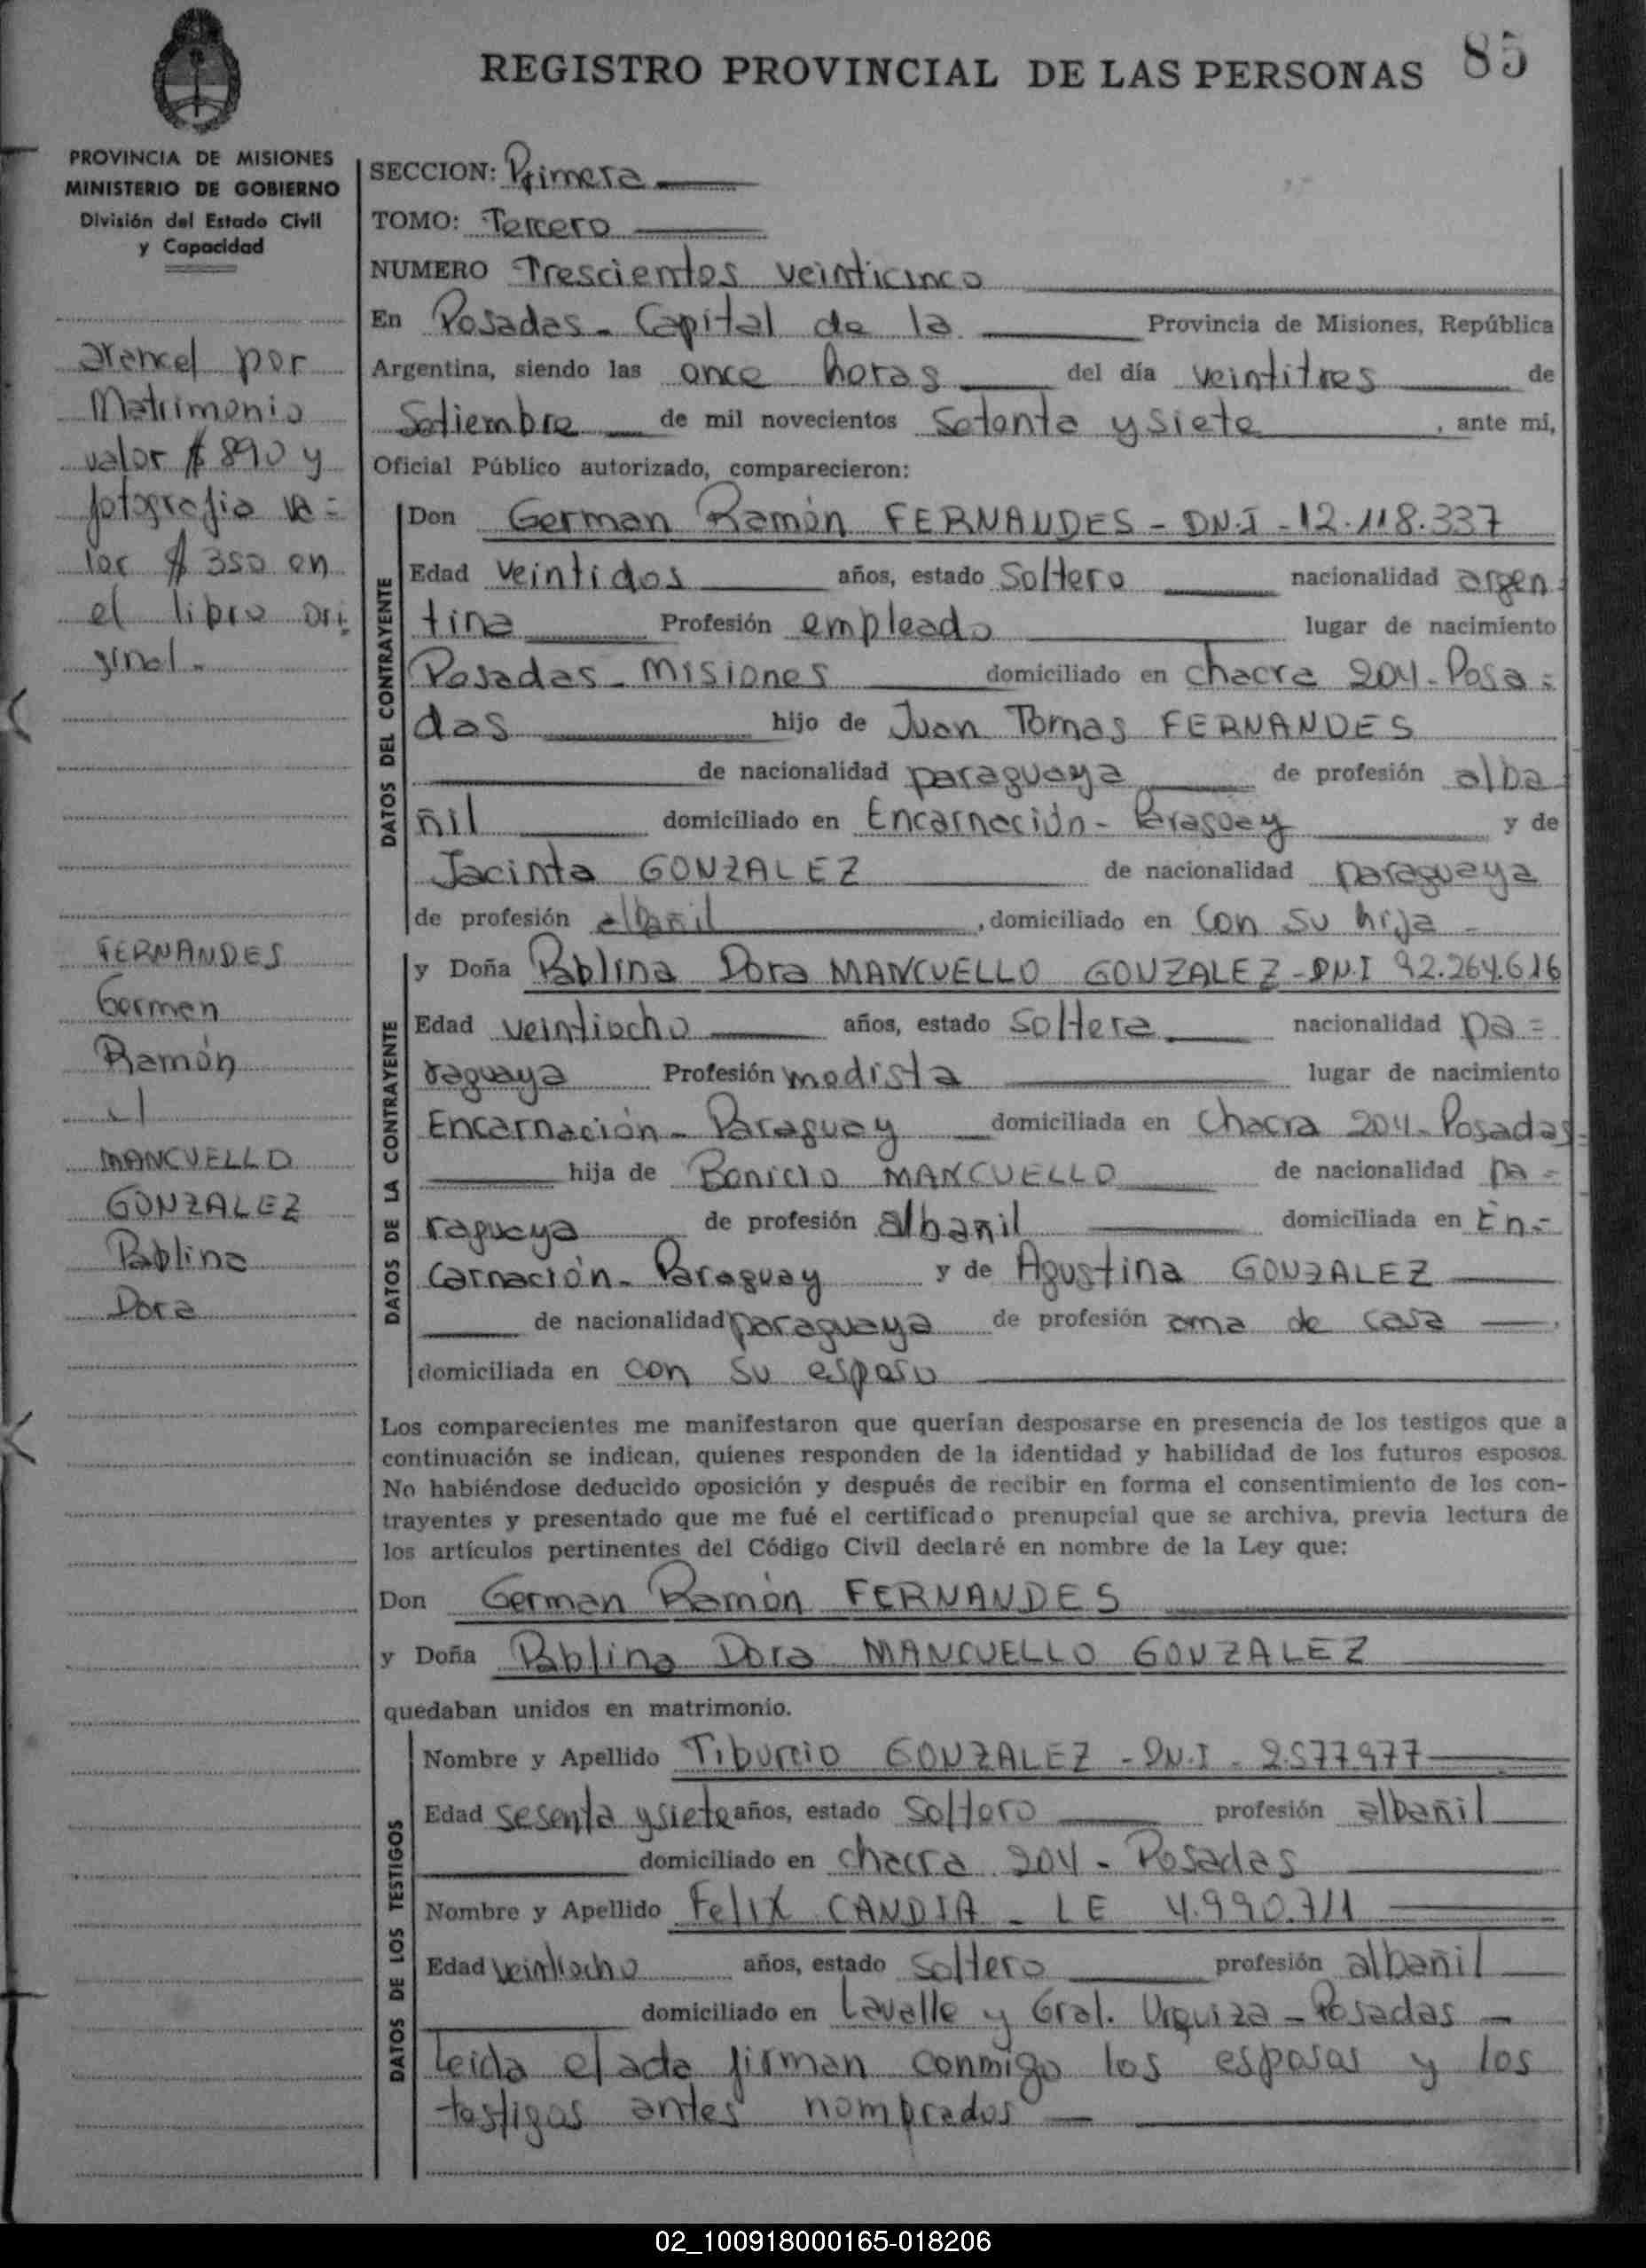 REGISTRO PROVINCIAL DE LAS PERSONAS 85
PROVINCIA DE MISIONES
MINISTERIO DE GOBIERNO
División del Estado Civil
y Capacidad
arancel por
Matrimonio
valor $ 890 y
fotografia va=
lor $ 350 en
el libro ori
ginal.
FERNANDES
German
Ramón
y
MANCUELLO
GONZALEZ
Pablina
Dora
SECCION: Primera
TOMO: Tercero
NUMERO Trescientos veinticinco
En Posadas - Capital de la Provincia de Misiones, República
Argentina, siendo las once horas del día veintitres de
Setiembre de mil novecientos Setenta y siete, ante mí,
Oficial Público autorizado, comparecieron:
DATOS DEL CONTRAYENTE
Don German Ramón FERNANDES - DN.I - 12.118.337
Edad veintidos años, estado Soltero nacionalidad argen
tina Profesión empleado lugar de nacimiento
Posadas - Misiones domiciliado en chacra 204 - Posa=
das hijo de Juan Tomas FERNANDES
de nacionalidad paraguaya de profesión alba
ñil domiciliado en Encarnación - Paraguay y de
Jacinta GONZALEZ de nacionalidad paraguaya
de profesión albañil, domiciliado en con su hija -
DATOS DE LA CONTRAYENTE
y Doña Pablina Dora MANCUELLO GONZALEZ - DN.I 92.264.616
Edad veintiocho años, estado Soltera nacionalidad pa=
raguaya Profesión modista lugar de nacimiento
Encarnación - Paraguay domiciliada en Chacra 204 - Posadas-
hija de Bonicio MANCUELLO de nacionalidad pa=
raguaya de profesión albañil domiciliada en En=
carnación - Paraguay y de Agustina GONZALEZ
de nacionalidad paraguaya de profesión ama de casa,
domiciliada en con su esposo
Los comparecientes me manifestaron que querían desposarse en presencia de los testigos que a
continuación se indican, quienes responden de la identidad y habilidad de los futuros esposos.
No habiéndose deducido oposición y después de recibir en forma el consentimiento de los con-
trayentes y presentado que me fué el certificado prenupcial que se archiva, previa lectura de
los artículos pertinentes del Código Civil declaré en nombre de la Ley que:
Don German Ramón FERNANDES
y Doña Pablina Dora MANCUELLO GONZALEZ
quedaban unidos en matrimonio.
DATOS DE LOS TESTIGOS
Nombre y Apellido Tiburcio GONZALEZ - DN.I - 2.577.977
Edad sesenta y siete años, estado Soltero profesión albañil
domiciliado en chacra 204 - Posadas
Nombre y Apellido Felix CANDIA - LE 4.990.711
Edad veintiocho años, estado Soltero profesión albañil
domiciliado en Lavalle y Gral. Urquiza - Posadas -
leida el acta firman conmigo los esposos y los
testigos antes nombrados -
02_100918000165-018206